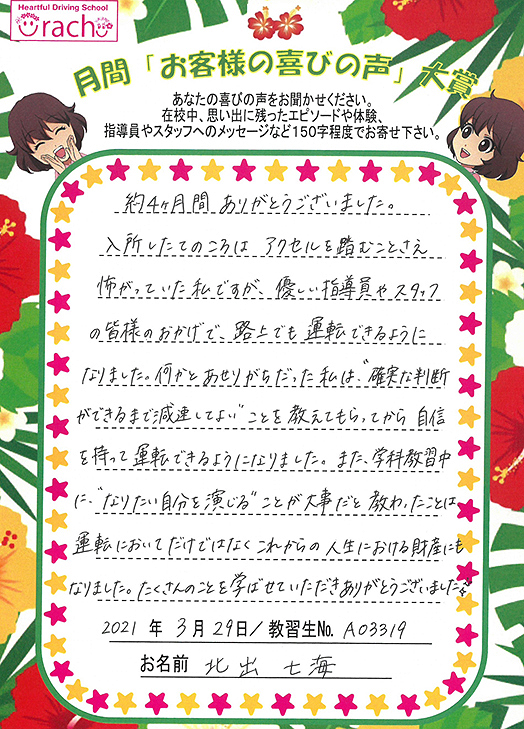 Heartful Driving School
Uracho
月間「お客様の喜びの声」大賞
あなたの喜びの声をお聞かせください。
在校中、思い出に残ったエピソードや体験、
指導員やスタッフへのメッセージなど150字程度でお寄せ下さい。
約4ヶ月間 ありがとうございました。
入所したてのころは アクセルを踏むことさえ
怖がっていた私ですが、優しい指導員やスタッフ
の皆様のおかげで、路上でも 運転できるように
なりました。何かとあせりがちだった私は、“確実な判断
ができるまで減速してよい”ことを教えてもらってから 自信
を持って運転できるようになりました。また、学科教習中
に、“なりたい自分を演じる”ことが大事だと 教わったことは
運転においてだけではなく これからの 人生における財産にも
なりました。たくさんのことを学ばせていただきありがとうございました。
2021 年 3 月 29 日/教習生No. A03319
お名前 北出 七海